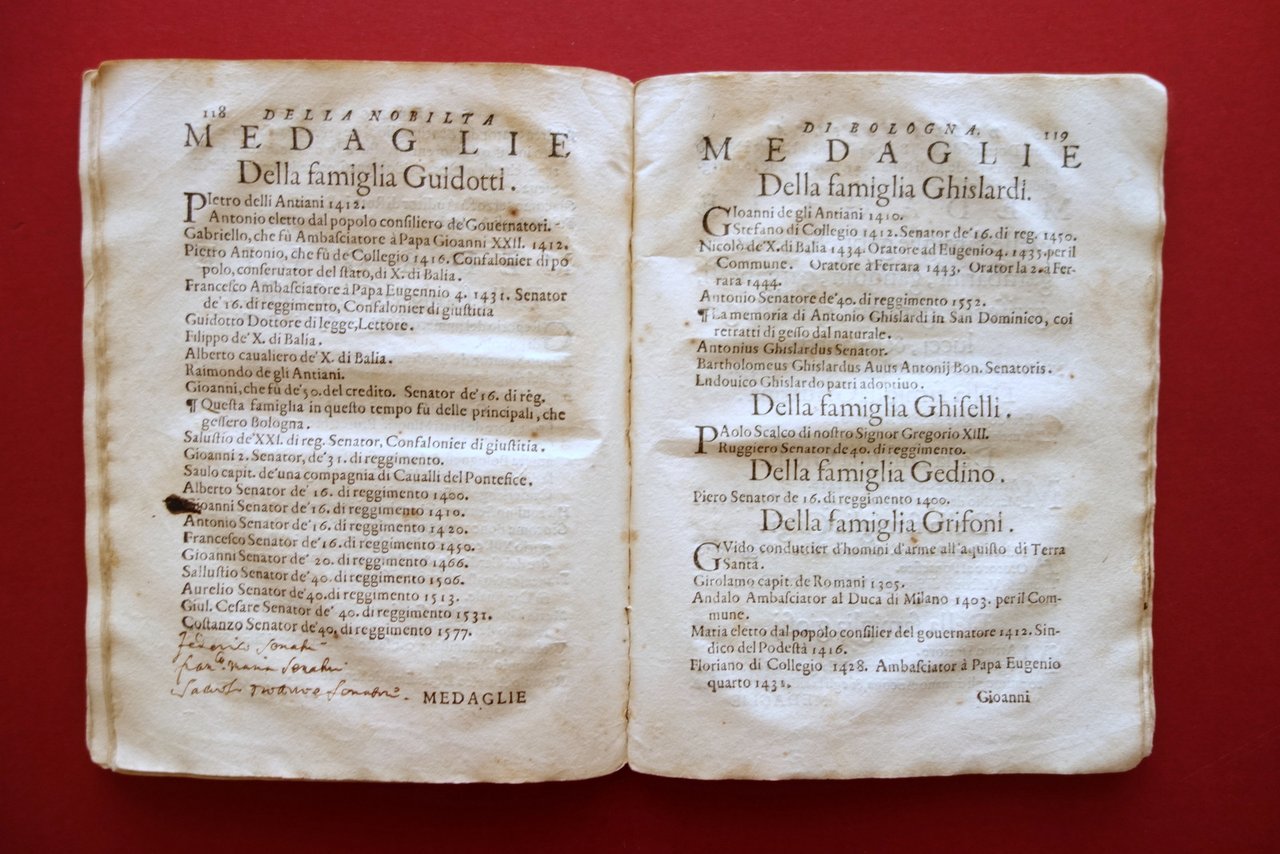 118 DELLA NOBILTA
MEDAGLIE
Della famiglia Guidotti.
PIetro delli Antiani 1412.
Antonio eletto dal popolo consiliero de' Gouernatori.
Gabriello, che fù Ambasciatore à Papa Gioanni XXII. 1412.
Pietro Antonio, che fù de Collegio 1416. Confalonier di po
polo, conseruator del stato, di X. di Balia.
Francesco Ambasciatore à Papa Eugennio 4. 1431. Senator
de' 16. di reggimento, Confalonier di giustitia
Guidotto Dottore di legge, Lettore.
Filippo de' X. di Balia.
Alberto caualiero de' X. di Balia.
Raimondo de gli Antiani.
Gioanni, che fù de' 50. del credito. Senator de' 16. di reg.
¶ Questa famiglia in questo tempo fù delle principali, che
gessero Bologna.
Salustio de' XXI. di reg. Senator, Confalonier di giustitia.
Gioanni 2. Senator, de' 31. di reggimento.
Saulo capit. de' una compagnia di Caualli del Pontefice.
Alberto Senator de' 16. di reggimento 1400.
Gioanni Senator de' 16. di reggimento 1410.
Antonio Senator de' 16. di reggimento 1420.
Francesco Senator de' 16. di reggimento 1450.
Gioanni Senator de' 20. di reggimento 1466.
Sallustio Senator de' 40. di reggimento 1506.
Aurelio Senator de' 40. di reggimento 1513.
Giul. Cesare Senator de' 40. di reggimento 1531.
Costanzo Senator de' 40. di reggimento 1577.
Federico
maria
MEDAGLIE
DI BOLOGNA. 119
MEDAGLIE
Della famiglia Ghislardi.
GIoanni de gli Antiani 1410.
Stefano di Collegio 1412. Senator de' 16. di reg. 1450.
Nicolò de' X. di Balia 1434. Oratore ad Eugenio 4. 1435. per il
Commune. Oratore à Ferrara 1443. Orator la 2. a Fer-
rara 1444.
Antonio Senatore de' 40. di reggimento 1552.
¶ La memoria di Antonio Ghislardi in San Dominico, coi
retratti di gesso dal naturale.
Antonius Ghislardus Senator.
Bartholomeus Ghislardus Auus Antonij Bon. Senatoris.
Ludouico Ghislardo patri adoptiuo.
Della famiglia Ghiselli.
PAolo Scalco di nostro Signor Gregorio XIII.
Ruggiero Senator de 40. di reggimento.
Della famiglia Gedino.
Piero Senator de 16. di reggimento 1400.
Della famiglia Grifoni.
GVido conduttier d'homini d'arme all'aquisto di Terra
Santa.
Girolamo capit. de Romani 1305.
Andalo Ambasciator al Duca di Milano 1403. per il Com-
mune.
Matia eletto dal popolo consilier del gouernatore 1412. Sin-
dico del Podestà 1416.
Floriano di Collegio 1428. Ambasciator à Papa Eugenio
quarto 1431.
Gioanni